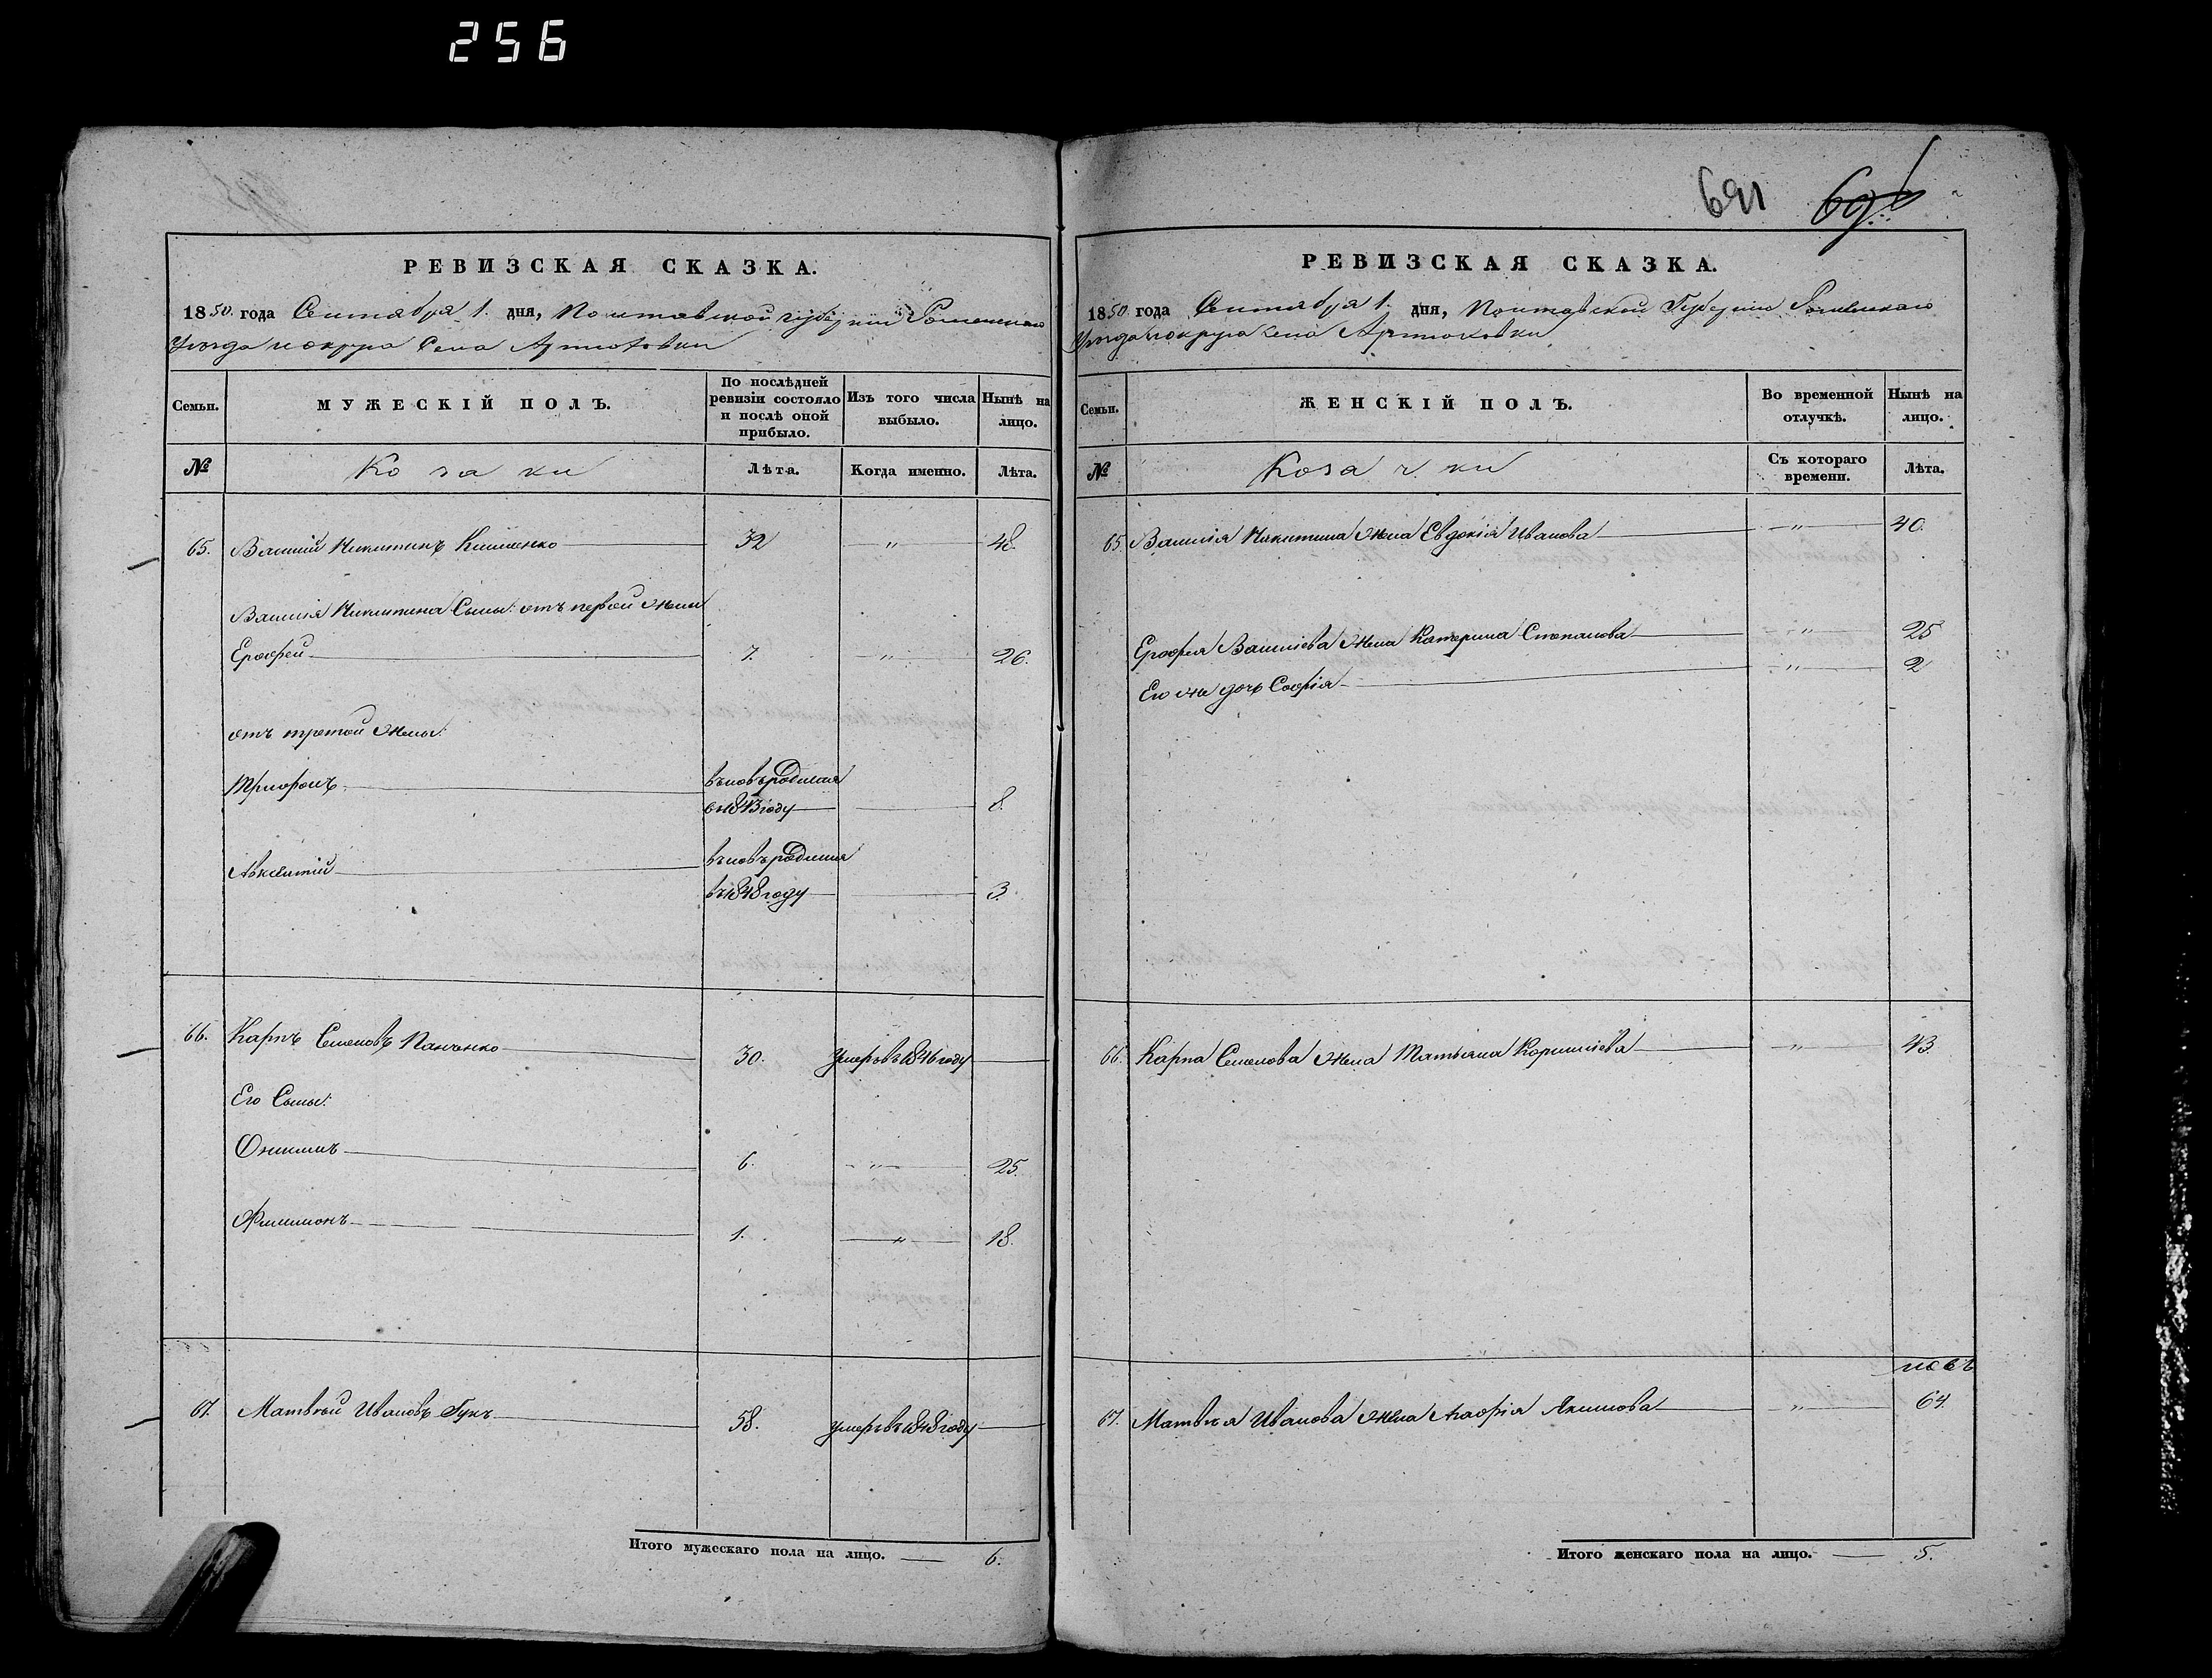 256
РЕВИЗСКАЯ СКАЗКА.
1850. года Сентября 1. дня, Полтавской губерніи Роменскаго
Уѣзда и округа Села Артюховки
Семьи.
МУЖЕСКІЙ ПОЛЪ.
По послѣдней ревизіи состояло и послѣ оной прибыло.
Изъ того числа выбыло.
Нынѣ на лицо.
№
Козаки
Лѣта.
Когда именно.
Лѣта.
65. Василій Никитинъ 32 " 48.
Василія Никитина Сыны: отъ первой жены
Ерофей 7. " 26.
отъ третой жены:
Трифонъ вновь родился
въ 1843 году 8.
Авксентій вновь родился
въ 1848 году 3.
66. Карпъ Семеновъ Панченко 30. умеръ въ 1846 году
Его Сыны:
Онисимъ 6. " 25.
Филимонъ 1. " 18.
67. Матвѣй Ивановъ Гукъ 58. умеръ въ 1848 году
Итого мужескаго пола на лицо. 6.
691 696
РЕВИЗСКАЯ СКАЗКА.
1850 года Сентября 1. дня, Полтавской Губерніи Роменскаго
Уѣзда и округа села Артюховки
Семьи.
ЖЕНСКІЙ ПОЛЪ.
Во временной отлучкѣ.
Нынѣ на лицо.
№
Козачки
Съ котораго времени.
Лѣта.
65. Василія Никитина жена Евдокія Иванова " 40.
Ерофея Василіева жена Катерина Степанова " 25
Его же дочь Софія " 2
66. Карпа Семенова жена Матьяна Корниліева " 43.
67. Матвѣя Иванова жена Агафія Якимова " 64.
Итого женскаго пола на лицо. 5.